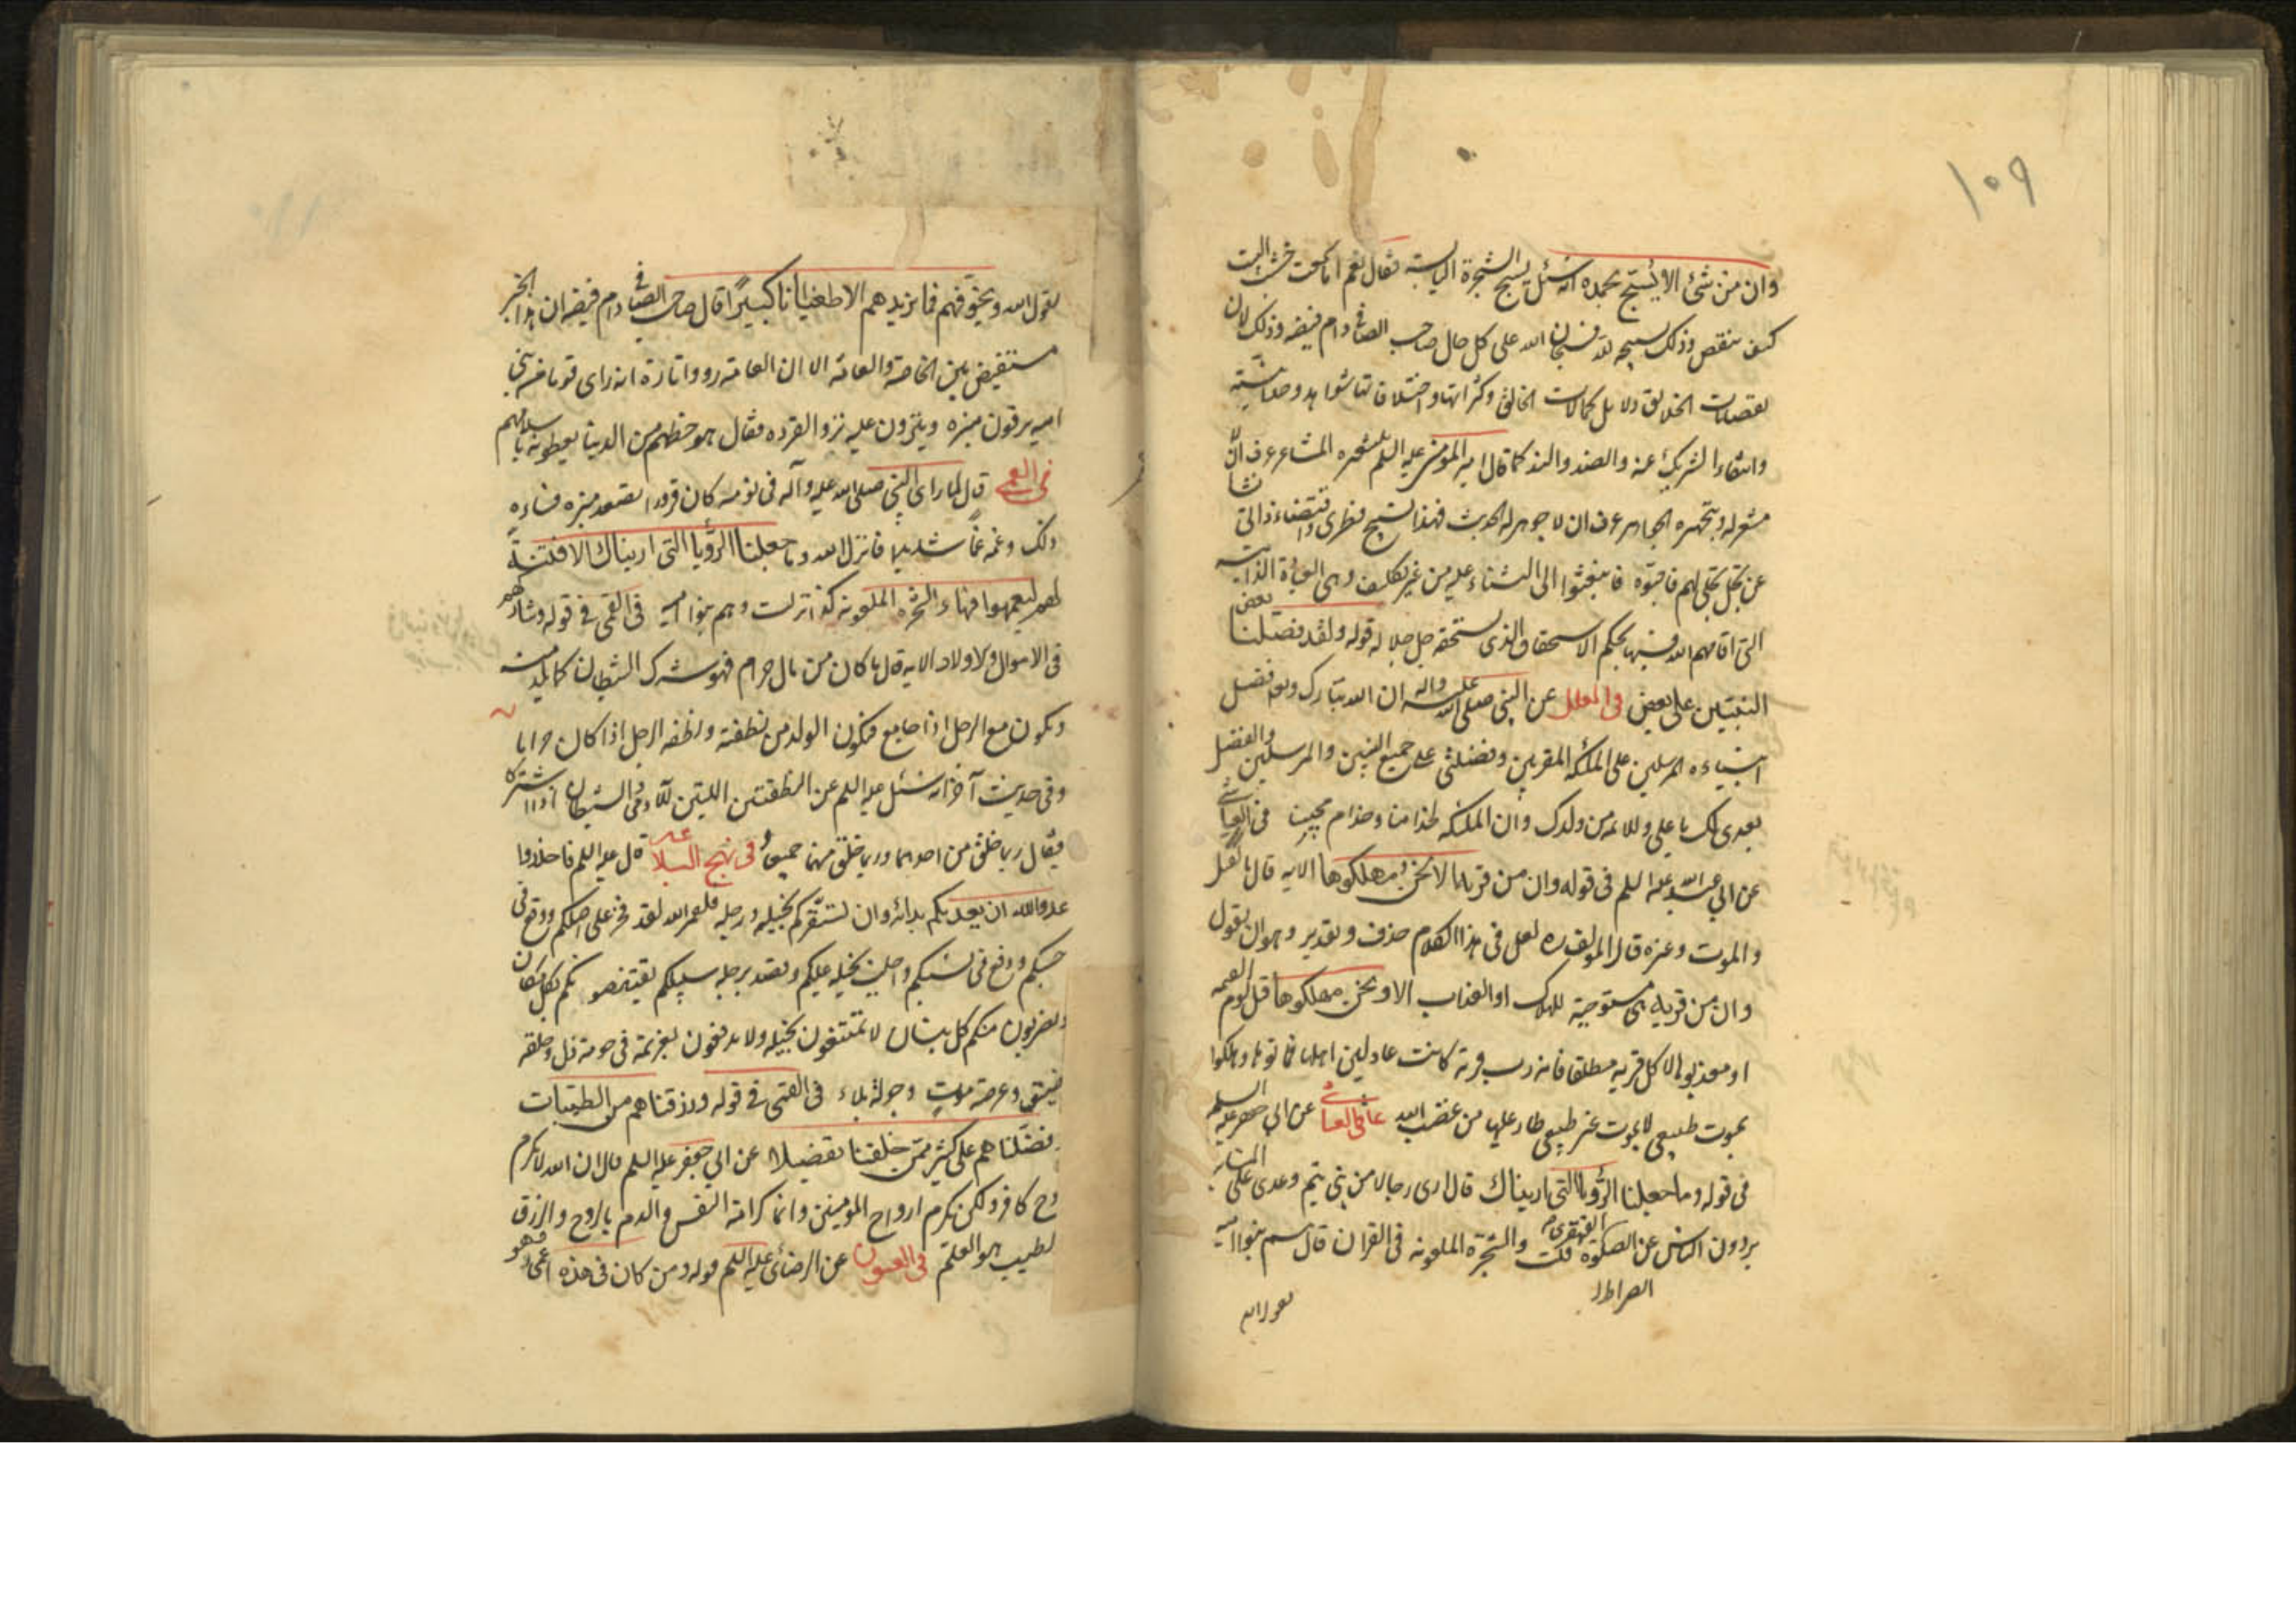 ١٠٩
وان من شئ الا يسبح بحمده انه سئل يسبح الشجرة اليابسة فقال نعم اما سمعت خشب البيت
كيف ينقص وذلك تسبيحه لله فسبحان الله على كل حال صاحب الصافى دام فيضه وذلك لان
نقصانات الخلايق دلايل كمالات الخالق وكثراتها واختلافاتها شواهد وحدانيته
وانتفاء الشريك عنه والضد والند كما قال امير المؤمنين عليه السلم بتشعيره المشاعر عرف ان لا
مشعر له وبتجهيره الجواهر عرف ان لا جوهر له الحديث فهذا تسبيح فطرى واقتضاء ذاتى نشأ
عن تجل تجلى لهم فاحبوه فابنعثوا الى الثناء عليه من غير تكليف وهى العبادة الذاتية
التى اقامهم الله فيها بحكم الاستحقاق الذى يستحقه جل جلاله قوله ولقد فضلنا بعض
النبيين على بعض فى العلل عن النبى صلى الله عليه واله ان الله تبارك وتعالى فضل
انبياءه المرسلين على الملئكة المقربين وفضلنى على جميع النبيين والمرسلين والفضل
بعدى لك يا على وللائمة من ولدك وان الملئكة لخدامنا وخدام محبينا فى العياشى
عن ابي عبد الله عليه السلم فى قوله وان من قرية الا نحن مهلكوها الاية قال بالقتل
والموت وغيره قال المولف ره لعل فى هذا الكلام حذف وتقدير وهو ان يقول
وان من قرية هى مستوجبة للهلاك او العذاب الا ونحن مهلكوها قبل يوم القيمة
او معذبوها لا كل قرية مطلقا فانه رب قرية كانت عادلين اهلها فماتوا وهلكوا
بموت طبيعى لا بموت غير طبيعى طار عليها من غضب الله فى العياشى عن ابي جعفر عليه السلم
فى قوله وما جعلنا الرؤيا التى اريناك قال ارى رجالا من بنى تيم وعدى على المنابر
يردون الناس عن الصراط القهقرى قلت والشجرة الملعونة فى القران قال هم بنو امية
الصراط
يقول الله
يقول الله ونخوفهم فما يزيدهم الا طغيانا كبيرا قال صاحب الصافى دام فيضه ان هذا الخبر
مستفيض بين الخاصة والعامة الا ان العامة رووا تارة انه راى قوما من بنى
امية يرقون منبره وينزون عليه نزو القردة فقال هو حظهم من الدنيا يعطونه باسلامهم
فى القمى قال لما راى النبى صلى الله عليه وآله فى نومه كان قرودا تصعد منبره فساءه
ذلك وغمه غما شديدا فانزل الله وما جعلنا الرؤيا التى اريناك الا فتنة
لهم ليعمهوا فيها والشجرة الملعونة كذا نزلت وهم بنو امية فى القمى فى قوله وشاركهم
فى الاموال والاولاد الاية قال ما كان من مال حرام فهو شرك الشيطان
ويكون مع الرجل اذا جامع فيكون الولد من نطفته ونطفة الرجل اذا كان حراما
وفى حديث آخر انه سئل عليه السلم عن النطفتين اللتين للادمى والشيطان اذا اشتركا
فقال ربما خلق من احدهما وربما خلق منهما جميعا فى نهج البلاغة قال عليه السلم فاحذروا
عدو الله ان يعديكم بدائه وان يستفزكم بخيله ورجله فلعمر الله لقد فخر على اصلكم ووقع فى
حسبكم ودفع فى نسبكم واجلب بخيله عليكم وقصد برجله سبيلكم يقتنصونكم بكل مكان
ويضربون منكم كل بنان لا تمتنعون بحيلة ولا تدفعون بعزيمة فى حومة ذل وحلقة
ضيق وعرصة موت وجولة بلاء فى القمى فى قوله ورزقناهم من الطيبات
وفضلناهم على كثير ممن خلقنا تفضيلا عن ابي جعفر عليه السلم قال ان الله لا يكرم
روح كافر ولكن يكرم ارواح المؤمنين وانما كرامة النفس والدم بالروح والرزق
الطيب هو العلم فى العيون عن الرضا عليه السلم قوله ومن كان فى هذه اعمى فهو